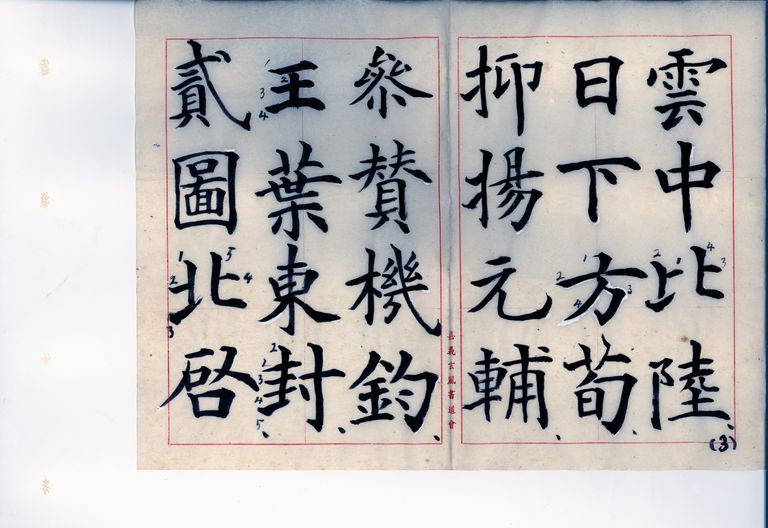 雲中比陸、
日下方荀、
抑揚元輔、
參贊機鈞、
王葉東封、
貳圖北启
嘉義玄風書道會
(3)